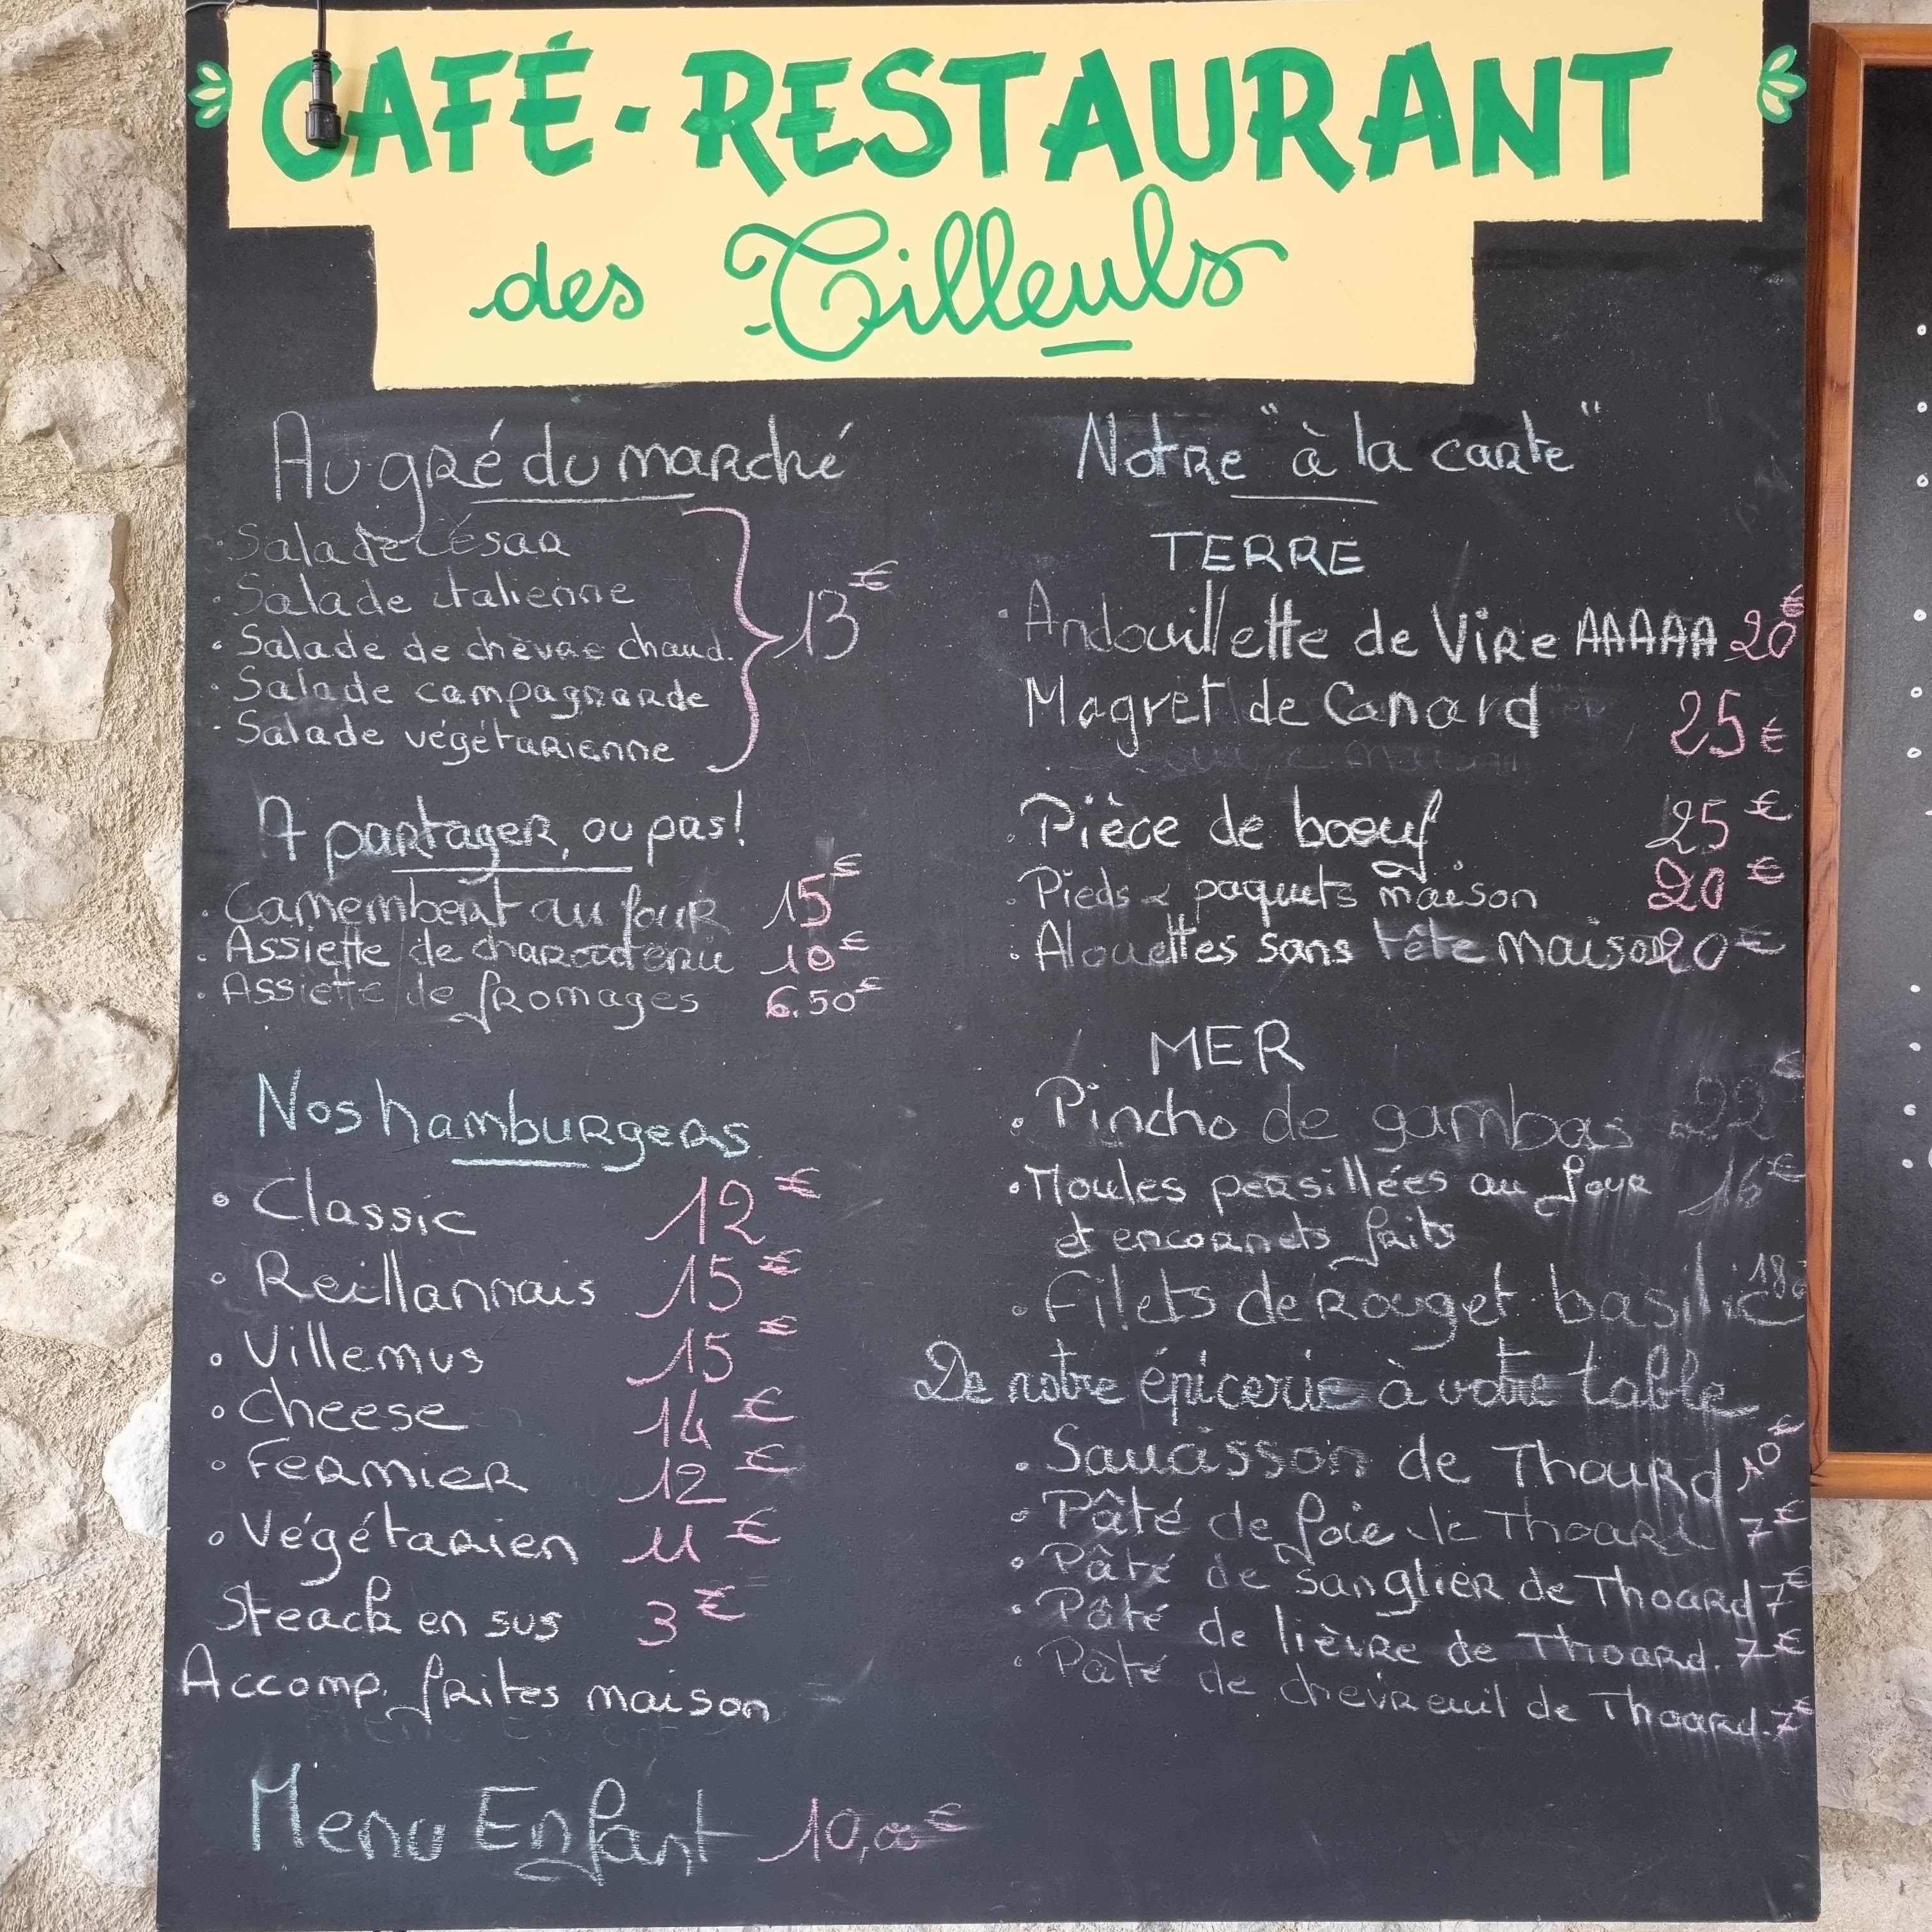 CAFÉ · RESTAURANT
des Tilleuls
Au gré du marché
· Salade César
· Salade italienne
· Salade de chèvre chaud.
· Salade campagnarde
· Salade végétarienne
13€
A partager, ou pas!
· Camembert au four 15€
· Assiette de charcuterie 10€
· Assiette de fromages 6.50€
Nos hamburgers
• Classic 12€
• Reillannais 15€
• Villemus 15€
• Cheese 14€
• Fermier 12€
• Végétarien 11€
Steack en sus 3€
Accomp. frites maison
Menu Enfant 10,00€
Notre "à la carte"
TERRE
· Andouillette de Vire AAAAA 20€
Magret de Canard 25€
· Pièce de boeuf 25€
· Pieds & paquets maison 20€
· Alouettes sans tête maison 20€
MER
· Pincho de gambas 22€
· Moules persillées au four 16€
et encornets frits
· Filets de Rouget basilic 18€
De notre épicerie à votre table
· Saucisson de Thoard 10€
· Pâté de foie de Thoard 7€
· Pâté de sanglier de Thoard 7€
· Pâté de lièvre de Thoard. 7€
· Pâté de chevreuil de Thoard. 7€